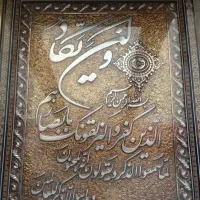 و ان یکاد
بسم الله الرحمن الرحیم
الذین کفروا لیزلقونک بابصارهم
لما سمعوا الذکر و یقولون انه لمجنون
و ما هو الا ذکر للعالمین